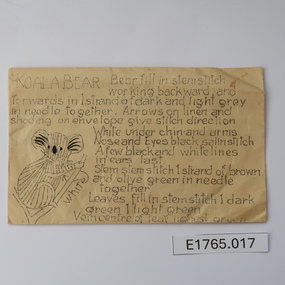 KOALA BEAR Bear fill in stem stitch
working backward, and
forwards in 1 strand of dark and light grey
in needle together. Arrows on linen and
shading on envelope give stitch direction
White under chin and arms
Nose and Eyes black satin stitch
A few black and white lines
in ears last
Stem stem stitch 1 strand of brown
and olive green in needle
together
Leaves, fill in stem stitch 1 dark
green 1 light green
Vein centre of leaf green
White
E1765.017